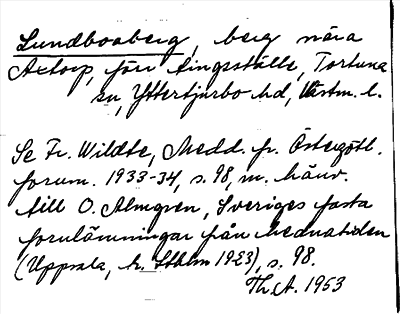 Lundboaberg, berg nära
Axtorp, förr tingsställe, Tortuna
sn, Yttertjurbo hd, Västm. l.
Se Fr. Wildte, Medd. fr. Östergötl.
fornm. 1933-34, s. 98, m. hänv.
till O. Almgren, Sveriges fasta
fornlämningar från hednatiden
(Uppsala, tr. Sthlm 1923), s. 98.
Th. A. 1953